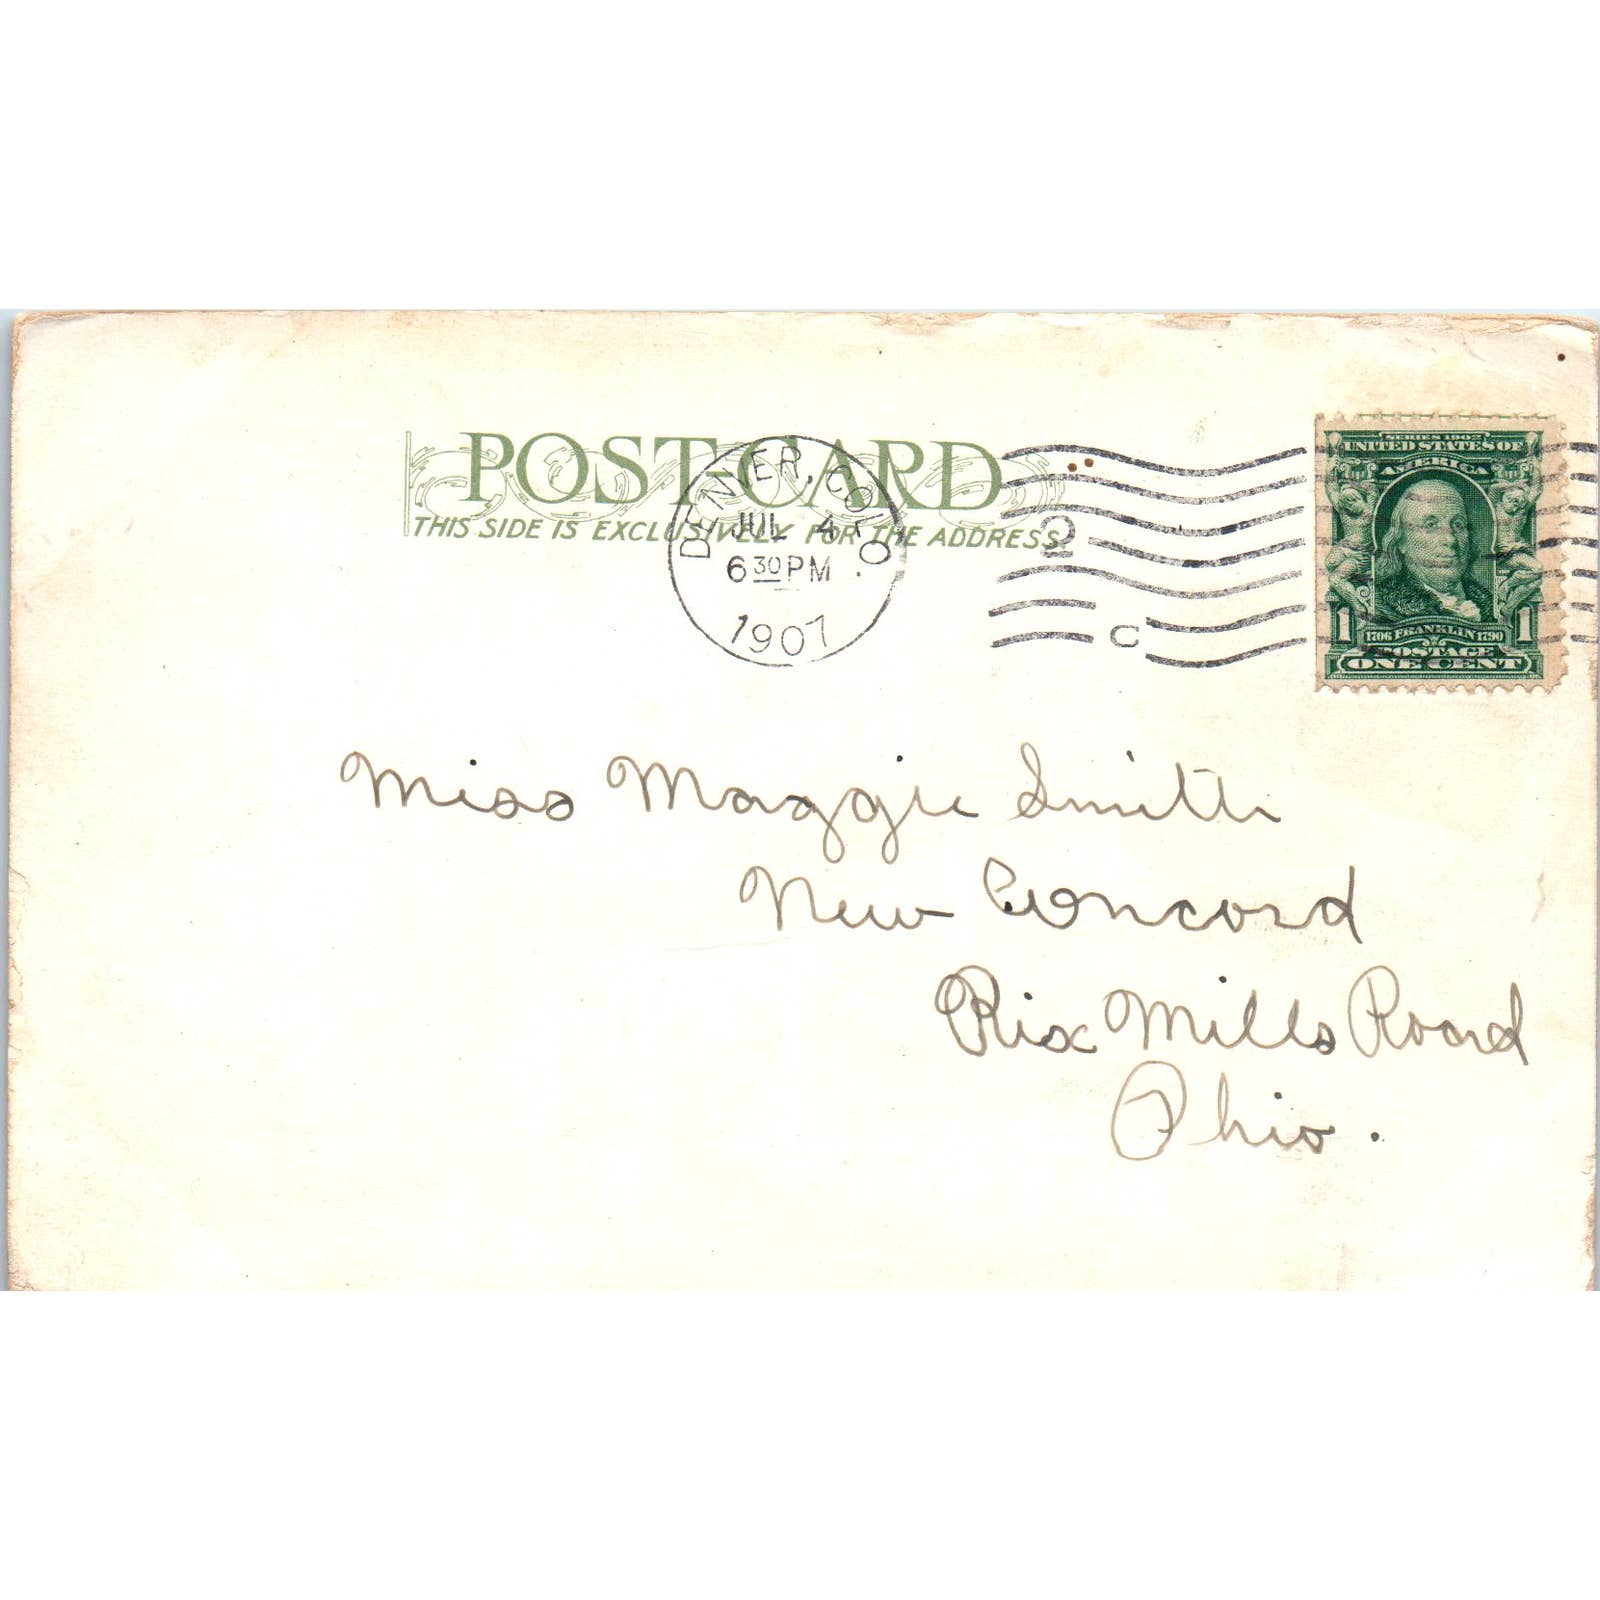 POST-CARD
THIS SIDE IS EXCLUSIVELY FOR THE ADDRESS.
DENVER, COLO.
JUL 4
6 30 PM
1907
2
C
SERIES 1902
UNITED STATES OF
AMERICA
1 1706 FRANKLIN 1790 1
POSTAGE
ONE CENT
Miss Maggie Smith
New Concord
Rix Mills Road
Ohio.